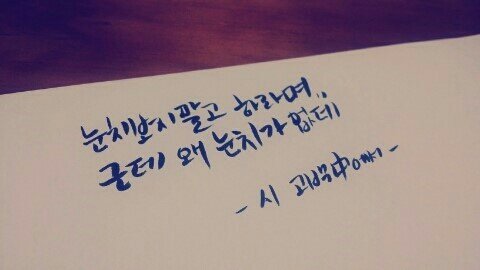 눈치보지말고 하라며,,
근데 왜 눈치가 없데
- 시 고백中에서 -